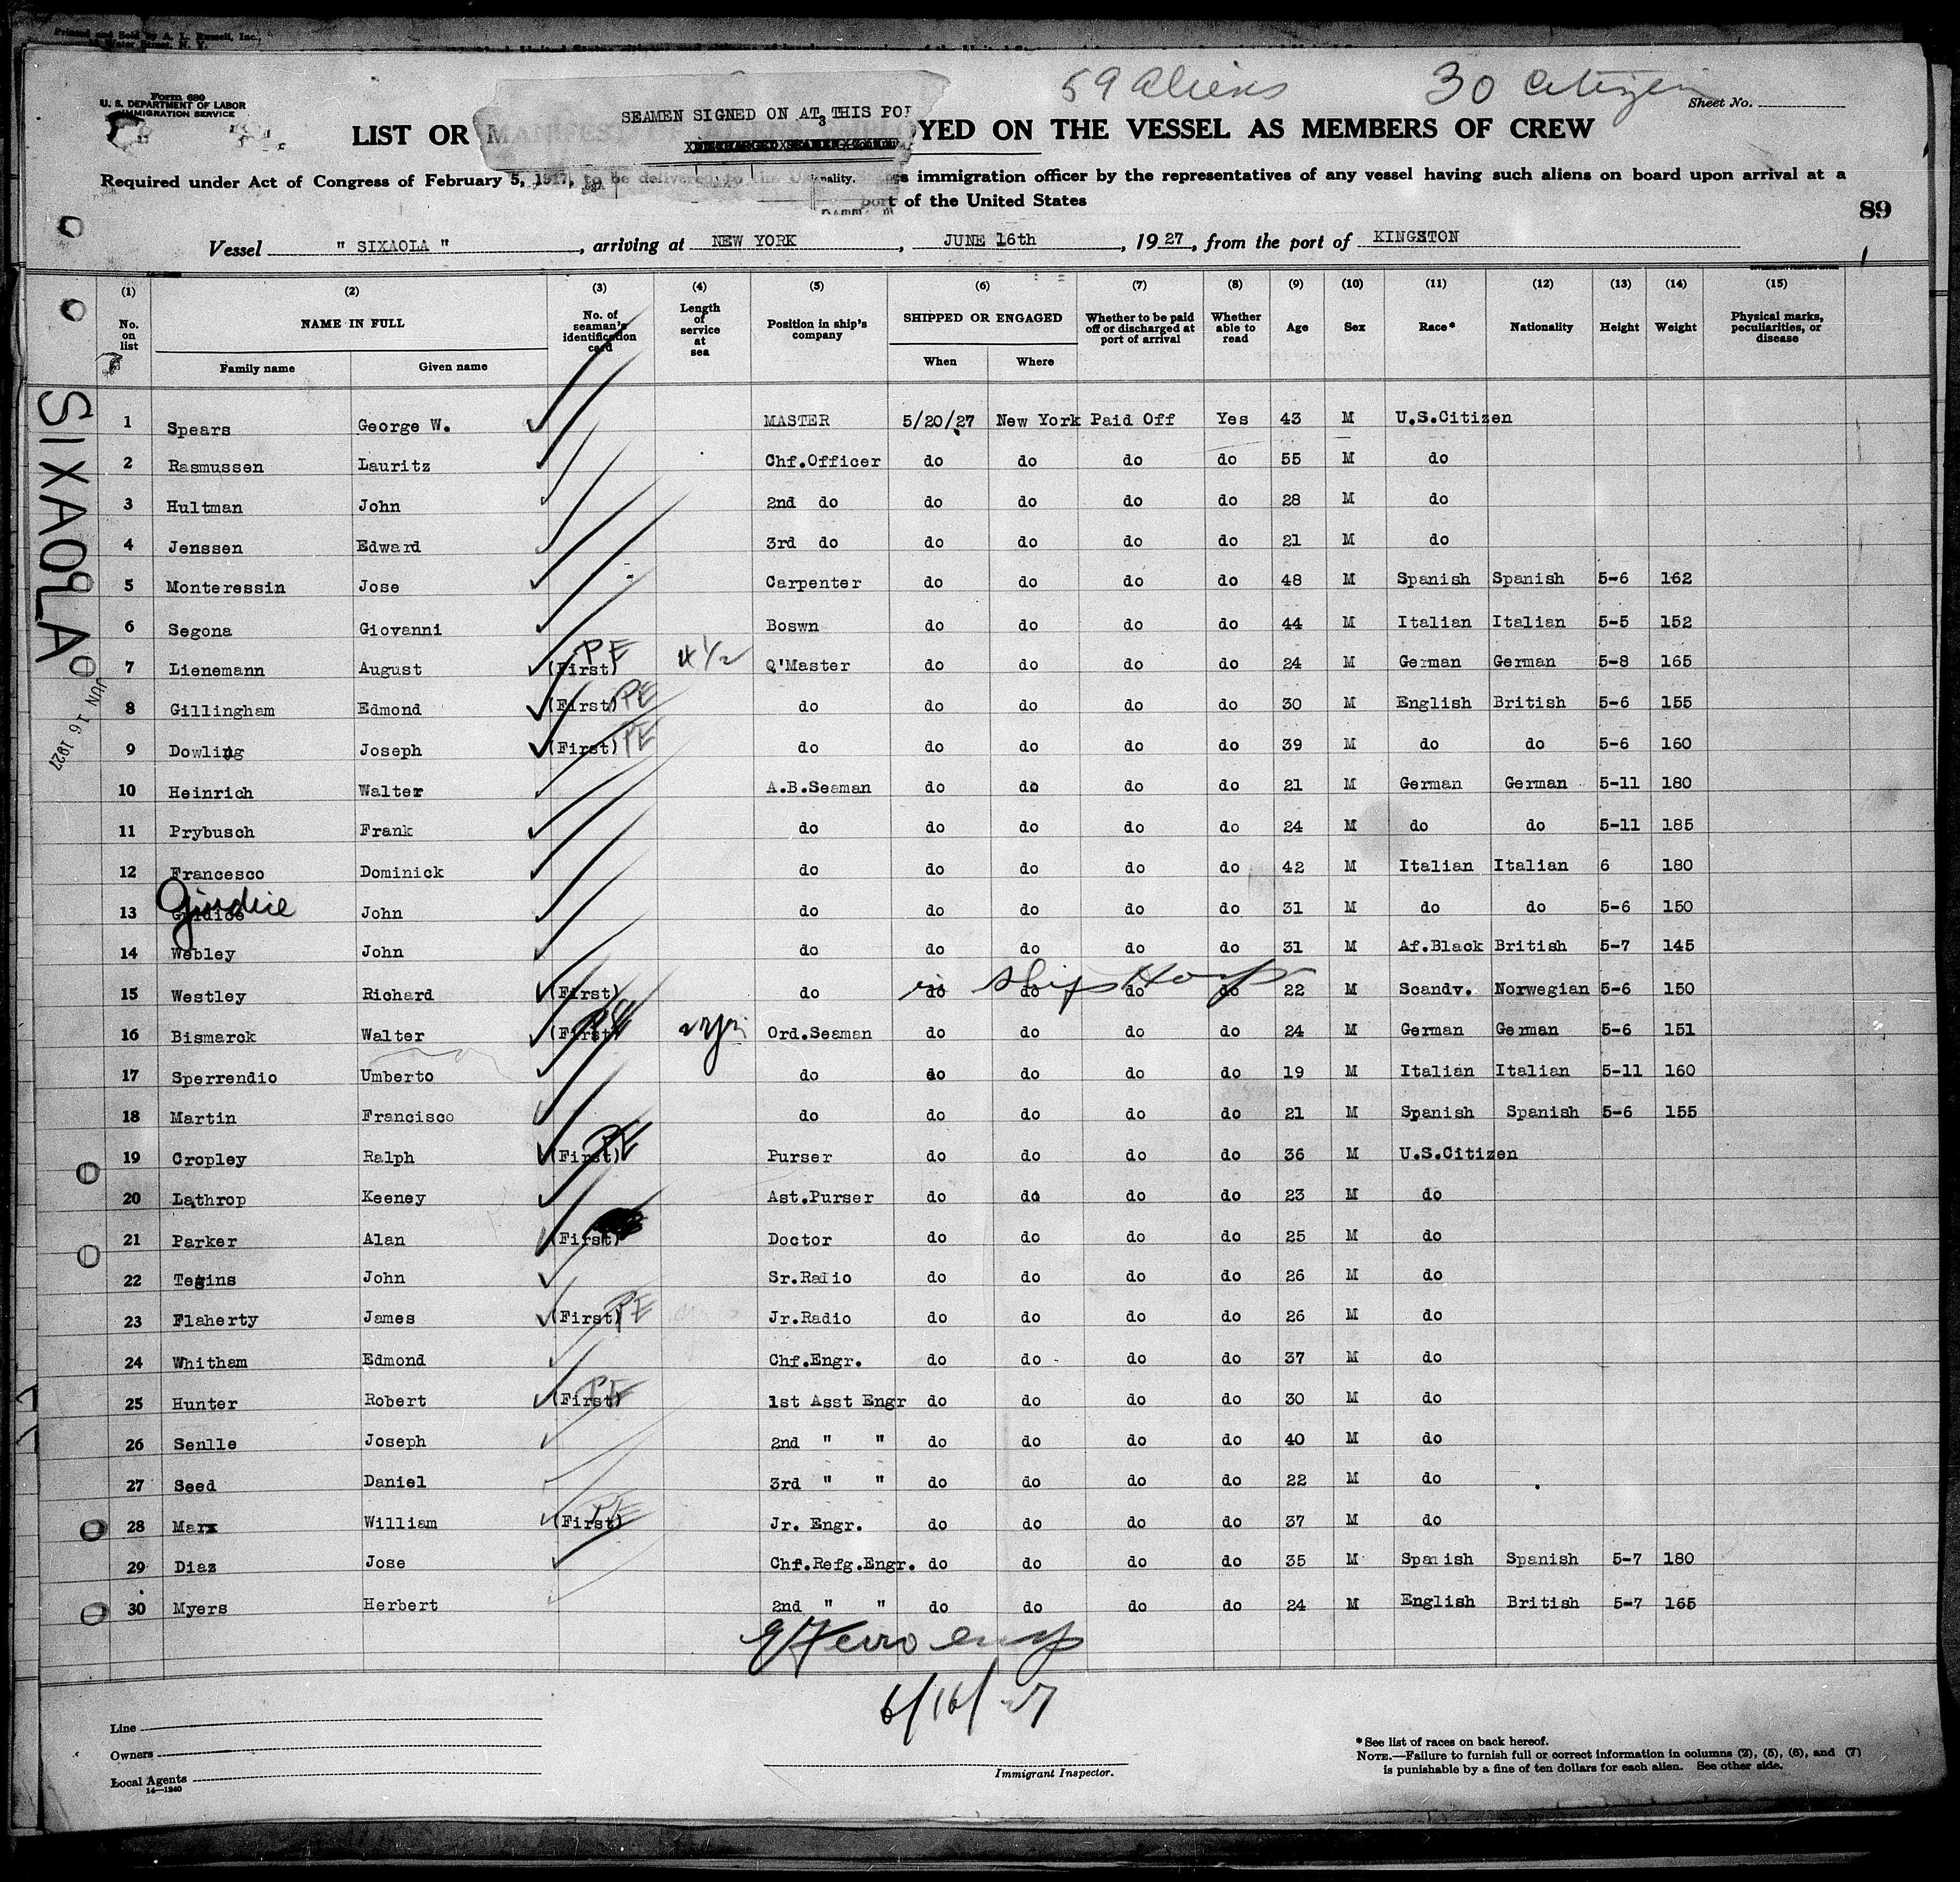 Printed and Sold by A. L. Russell, Inc.,
Water Street, N. Y.
59 Aliens 30 Citizen
Form 680
U. S. DEPARTMENT OF LABOR
IMMIGRATION SERVICE
Sheet No.
SEAMEN SIGNED ON AT THIS
LIST OR MANIFEST YED ON THE VESSEL AS MEMBERS OF CREW
Required under Act of Congress of February 5, 1917, to be delivered to the immigration officer by the representatives of any vessel having such aliens on board upon arrival at a
port of the United States
89
Vessel " SIXAOLA ", arriving at NEW YORK, JUNE 16th, 1927, from the port of KINGSTON
(1) (2) (3) (4) (5) (6) (7) (8) (9) (10) (11) (12) (13) (14) (15)
No. on list NAME IN FULL No. of seaman's identification card Length of service at sea Position in ship's company SHIPPED OR ENGAGED Whether to be paid off or discharged at port of arrival Whether able to read Age Sex Race* Nationality Height Weight Physical marks, peculiarities, or disease
Family name Given name When Where
SIXAOLA
JUN 16 1927
1 Spears George W. MASTER 5/20/27 New York Paid Off Yes 43 M U.S.Citizen
2 Rasmussen Lauritz Chf.Officer do do do do 55 M do
3 Hultman John 2nd do do do do do 28 M do
4 Jenssen Edward 3rd do do do do do 21 M do
5 Monteressin Jose Carpenter do do do do 48 M Spanish Spanish 5-6 162
6 Segona Giovanni Boswn do do do do 44 M Italian Italian 5-5 152
7 Lienemann August (First) PE 4 1/2 Q'Master do do do do 24 M German German 5-8 165
8 Gillingham Edmond (First) PE do do do do do 30 M English British 5-6 155
9 Dowling Joseph (First) PE do do do do do 39 M do do 5-6 160
10 Heinrich Walter A.B.Seaman do do do do 21 M German German 5-11 180
11 Prybusch Frank do do do do do 24 M do do 5-11 185
12 Francesco Dominick do do do do do 42 M Italian Italian 6 180
13 Giudice John do do do do do 31 M do do 5-6 150
14 Webley John do do do do do 31 M Af.Black British 5-7 145
in ship Hosp
15 Westley Richard (First) do do do do do 22 M Scandv. Norwegian 5-6 150
16 Bismarck Walter (First) PE 2 yrs Ord.Seaman do do do do 24 M German German 5-6 151
17 Sperrendio Umberto do do do do do 19 M Italian Italian 5-11 160
18 Martin Francisco do do do do do 21 M Spanish Spanish 5-6 155
19 Cropley Ralph (First) PE Purser do do do do 36 M U.S.Citizen
20 Lathrop Keeney Ast.Purser do do do do 23 M do
21 Parker Alan (First) Doctor do do do do 25 M do
22 Tegins John Sr.Radio do do do do 26 M do
23 Flaherty James (First) PE Jr.Radio do do do do 26 M do
24 Whitham Edmond Chf.Engr. do do do do 37 M do
25 Hunter Robert (First) PE 1st Asst Engr do do do do 30 M do
26 Senlle Joseph 2nd " " do do do do 40 M do
27 Seed Daniel 3rd " " do do do do 22 M do
28 Marx William (First) PE Jr. Engr. do do do do 37 M do
29 Diaz Jose Chf.Refg.Engr. do do do do 35 M Spanish Spanish 5-7 180
30 Myers Herbert 2nd " " do do do do 24 M English British 5-7 165
6/16/27
Line
Owners
Local Agents
14—1240
Immigrant Inspector.
*See list of races on back hereof.
NOTE.—Failure to furnish full or correct information in columns (2), (5), (6), and (7)
is punishable by a fine of ten dollars for each alien. See other side.